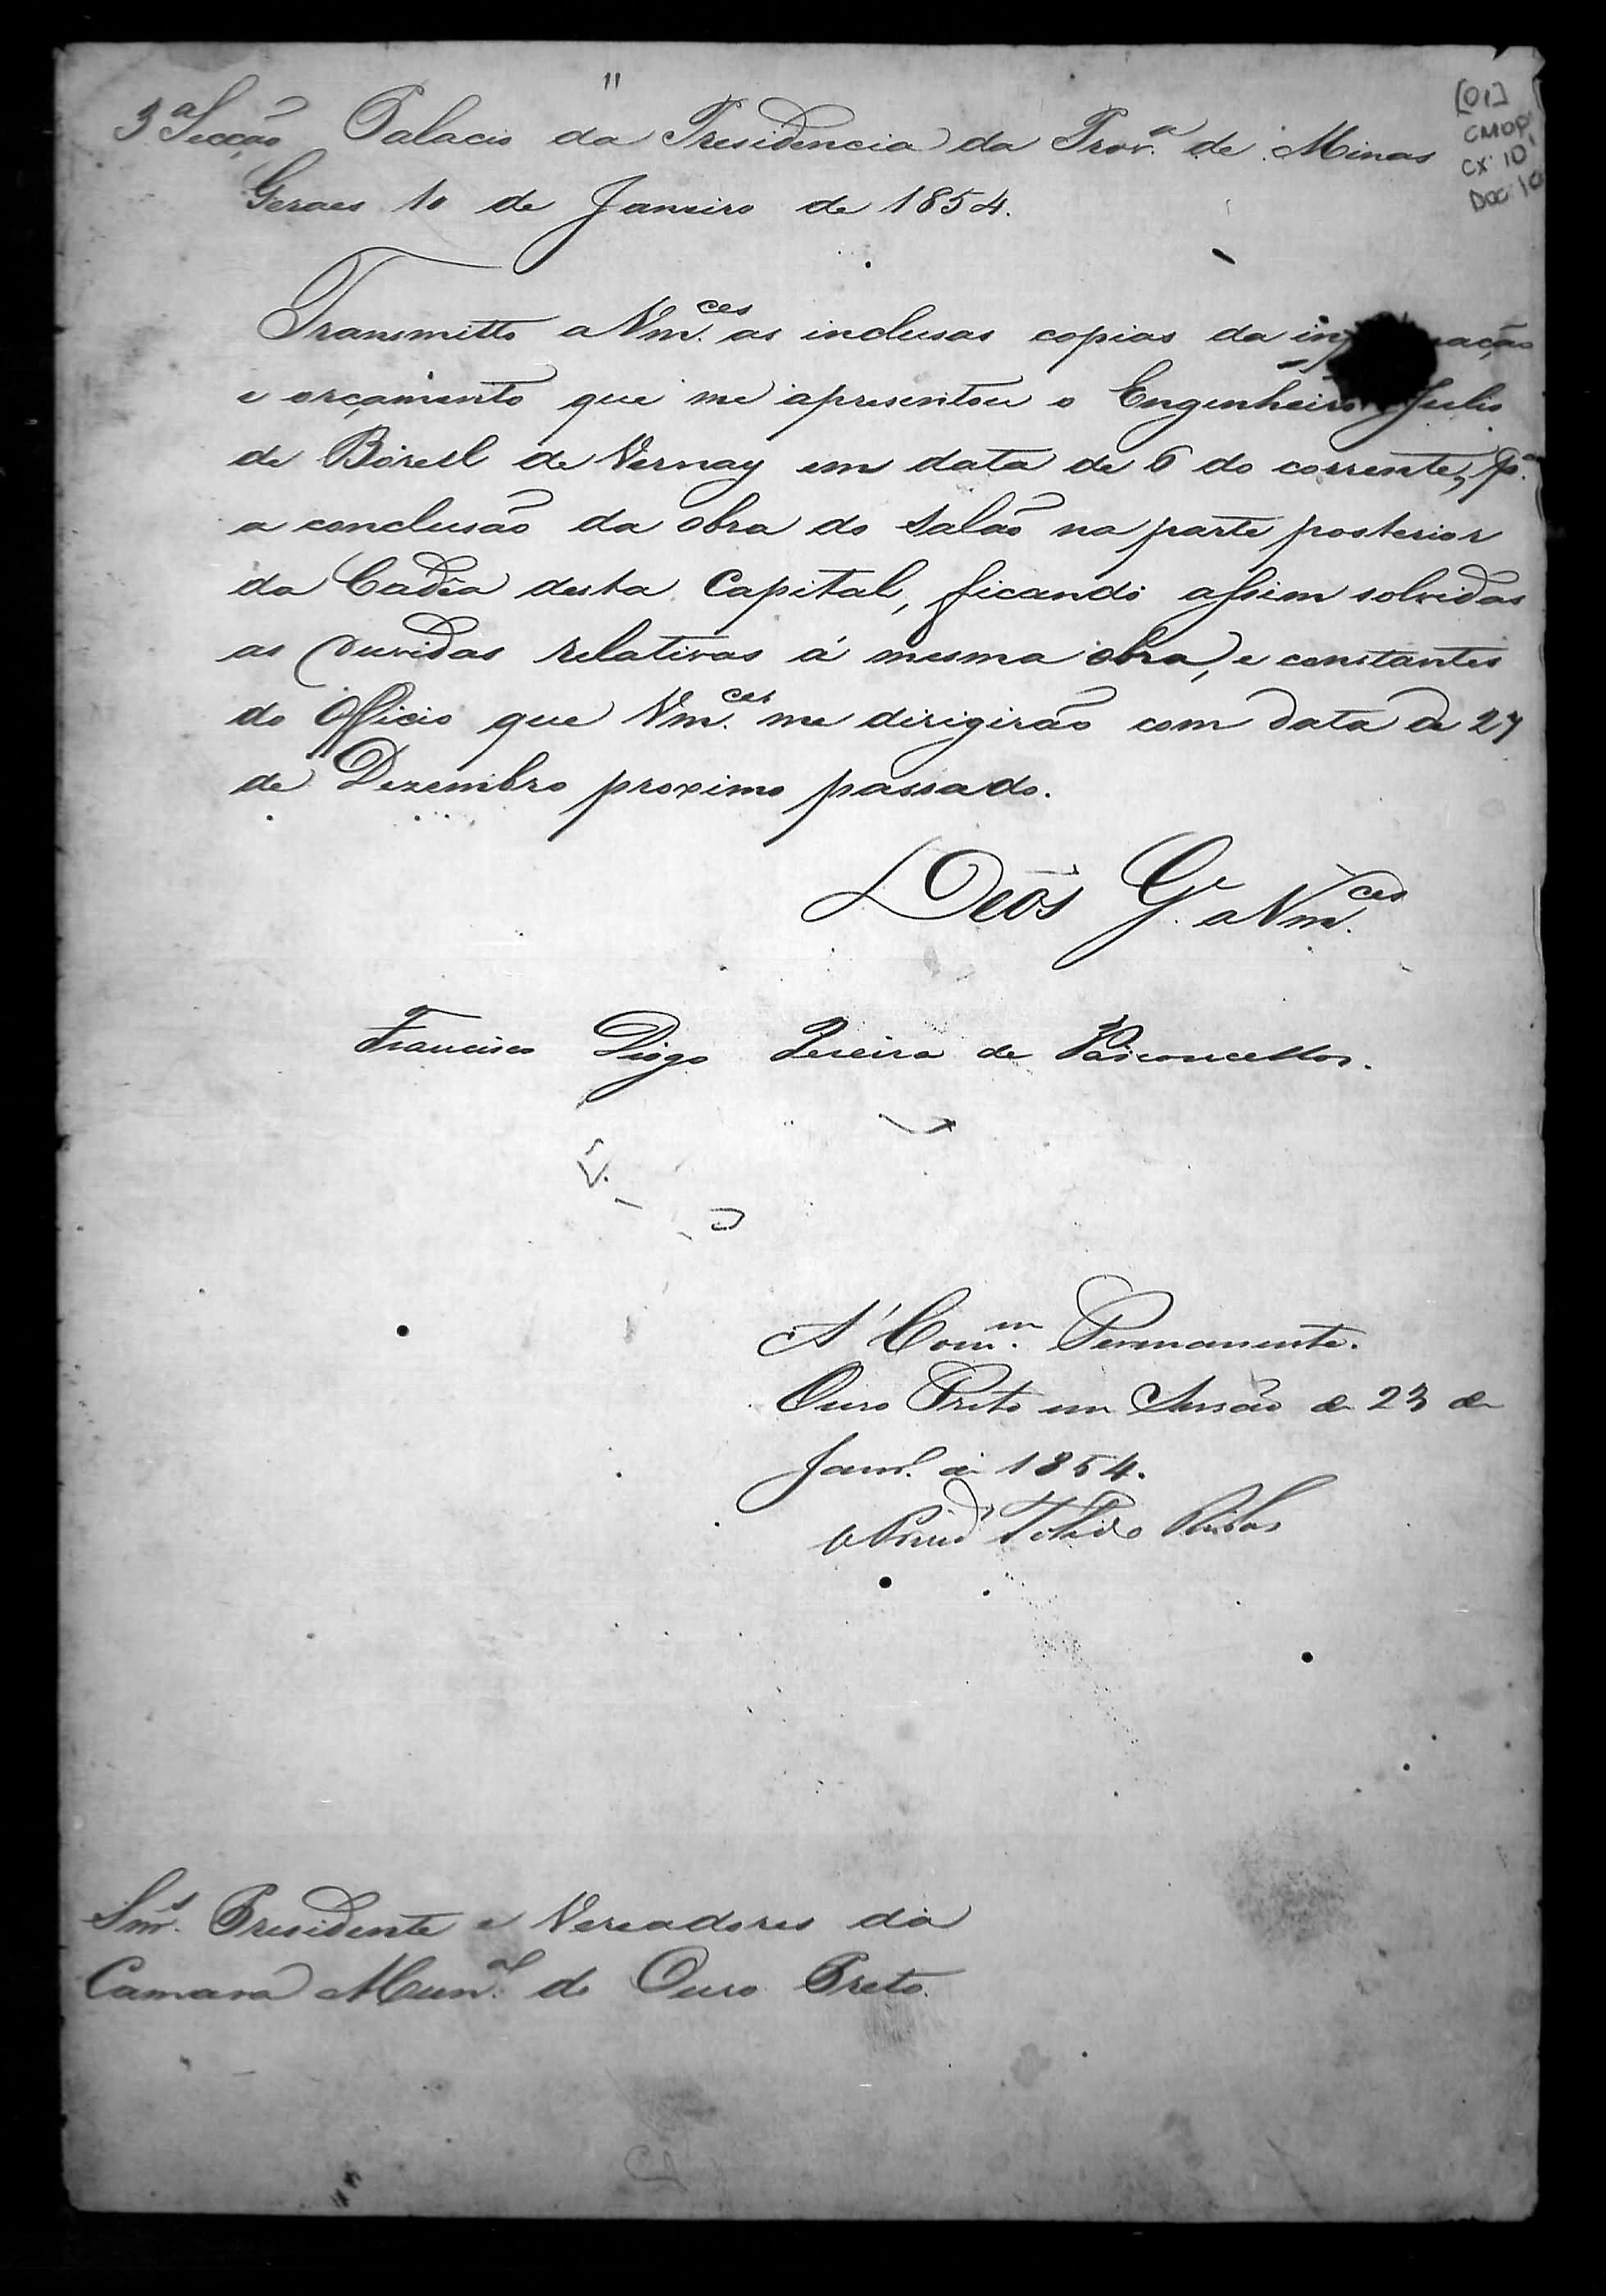 [01]
CMOP
CX. 10
DOC. 10
3.ª Secção Palacio da Presidencia da Prov.ª de Minas
Geraes 10 de Janeiro de 1854.
Transmitto a Vm.ces as inclusas copias da
e orçamento que me apresentou o Engenheiro Julio
de Borell de Vernay em data de 6 do corrente, p.ª
a conclusão da obra do Salão na parte posterior
da Cadêa desta Capital, ficando assim solvidas
as duvidas relativas á mesma obra, e constantes
do Officio que Vm.ces me dirigirão com data de 27
de Dezembro proximo passado.
Deos G.e a Vm.ces
Francisco Diogo Pereira de Vasconcellos.
A' Com.m Permanente.
Ouro Preto em Sessão de 23 de
Janr.º de 1854.
Sn.rs Presidente e Vereadores da
Camara Mun.al do Ouro Preto.